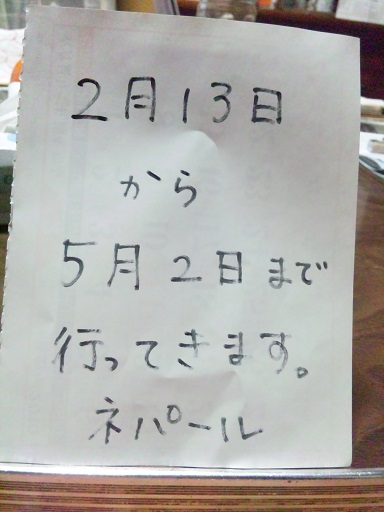 2月13日
から
5月2日まで
行ってきます。
ネパール